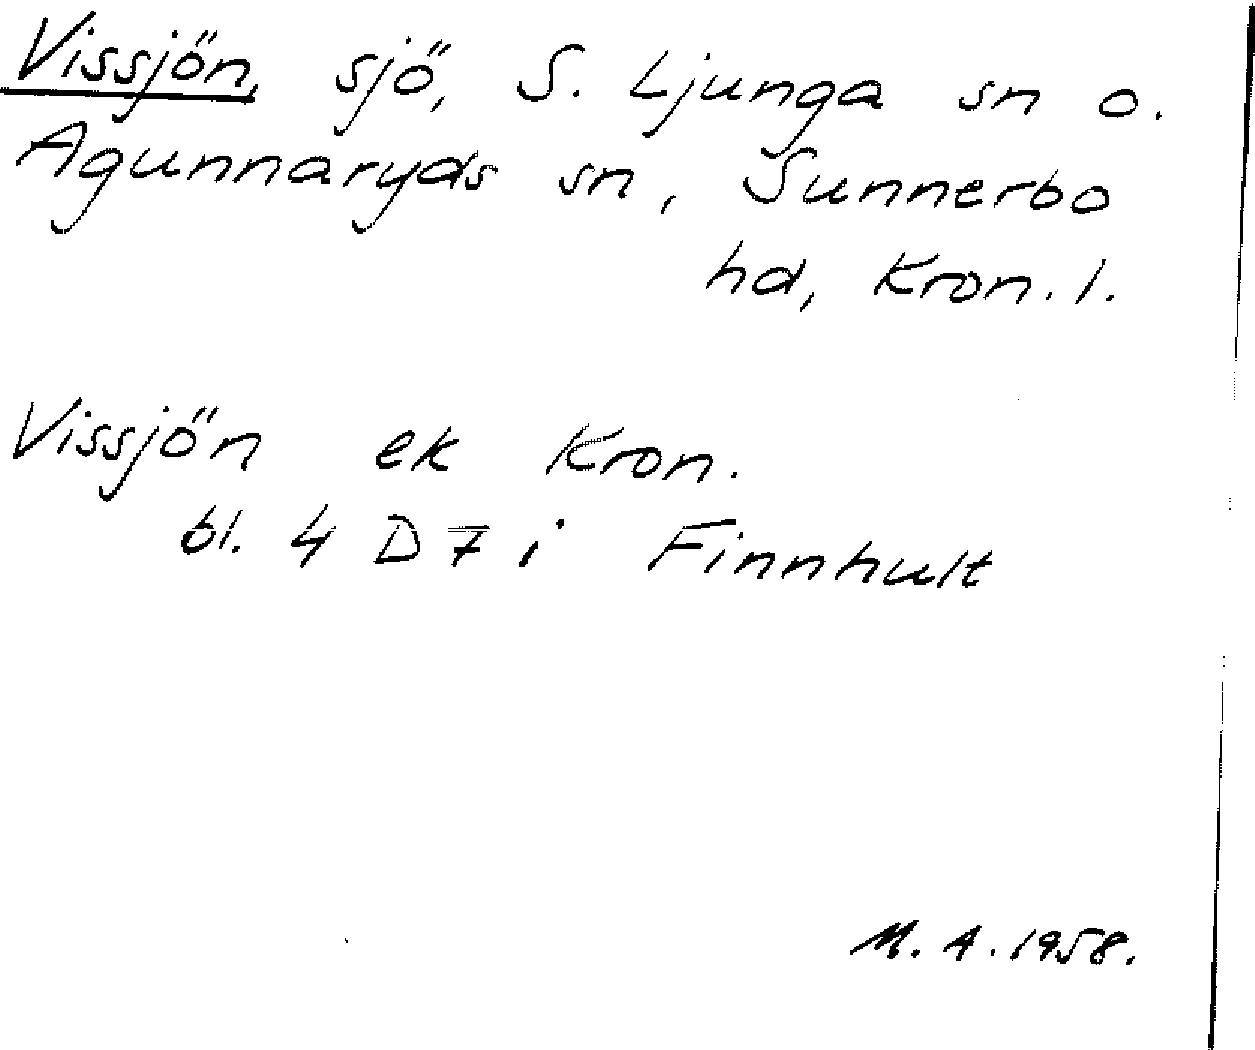 Vissjön, sjö, S. Ljunga sn o.
Agunnaryds sn, Sunnerbo
hd, Kron. l.
Vissjön ek Kron.
bl. 4 D 7 i Finnhult
M. A. 1958.